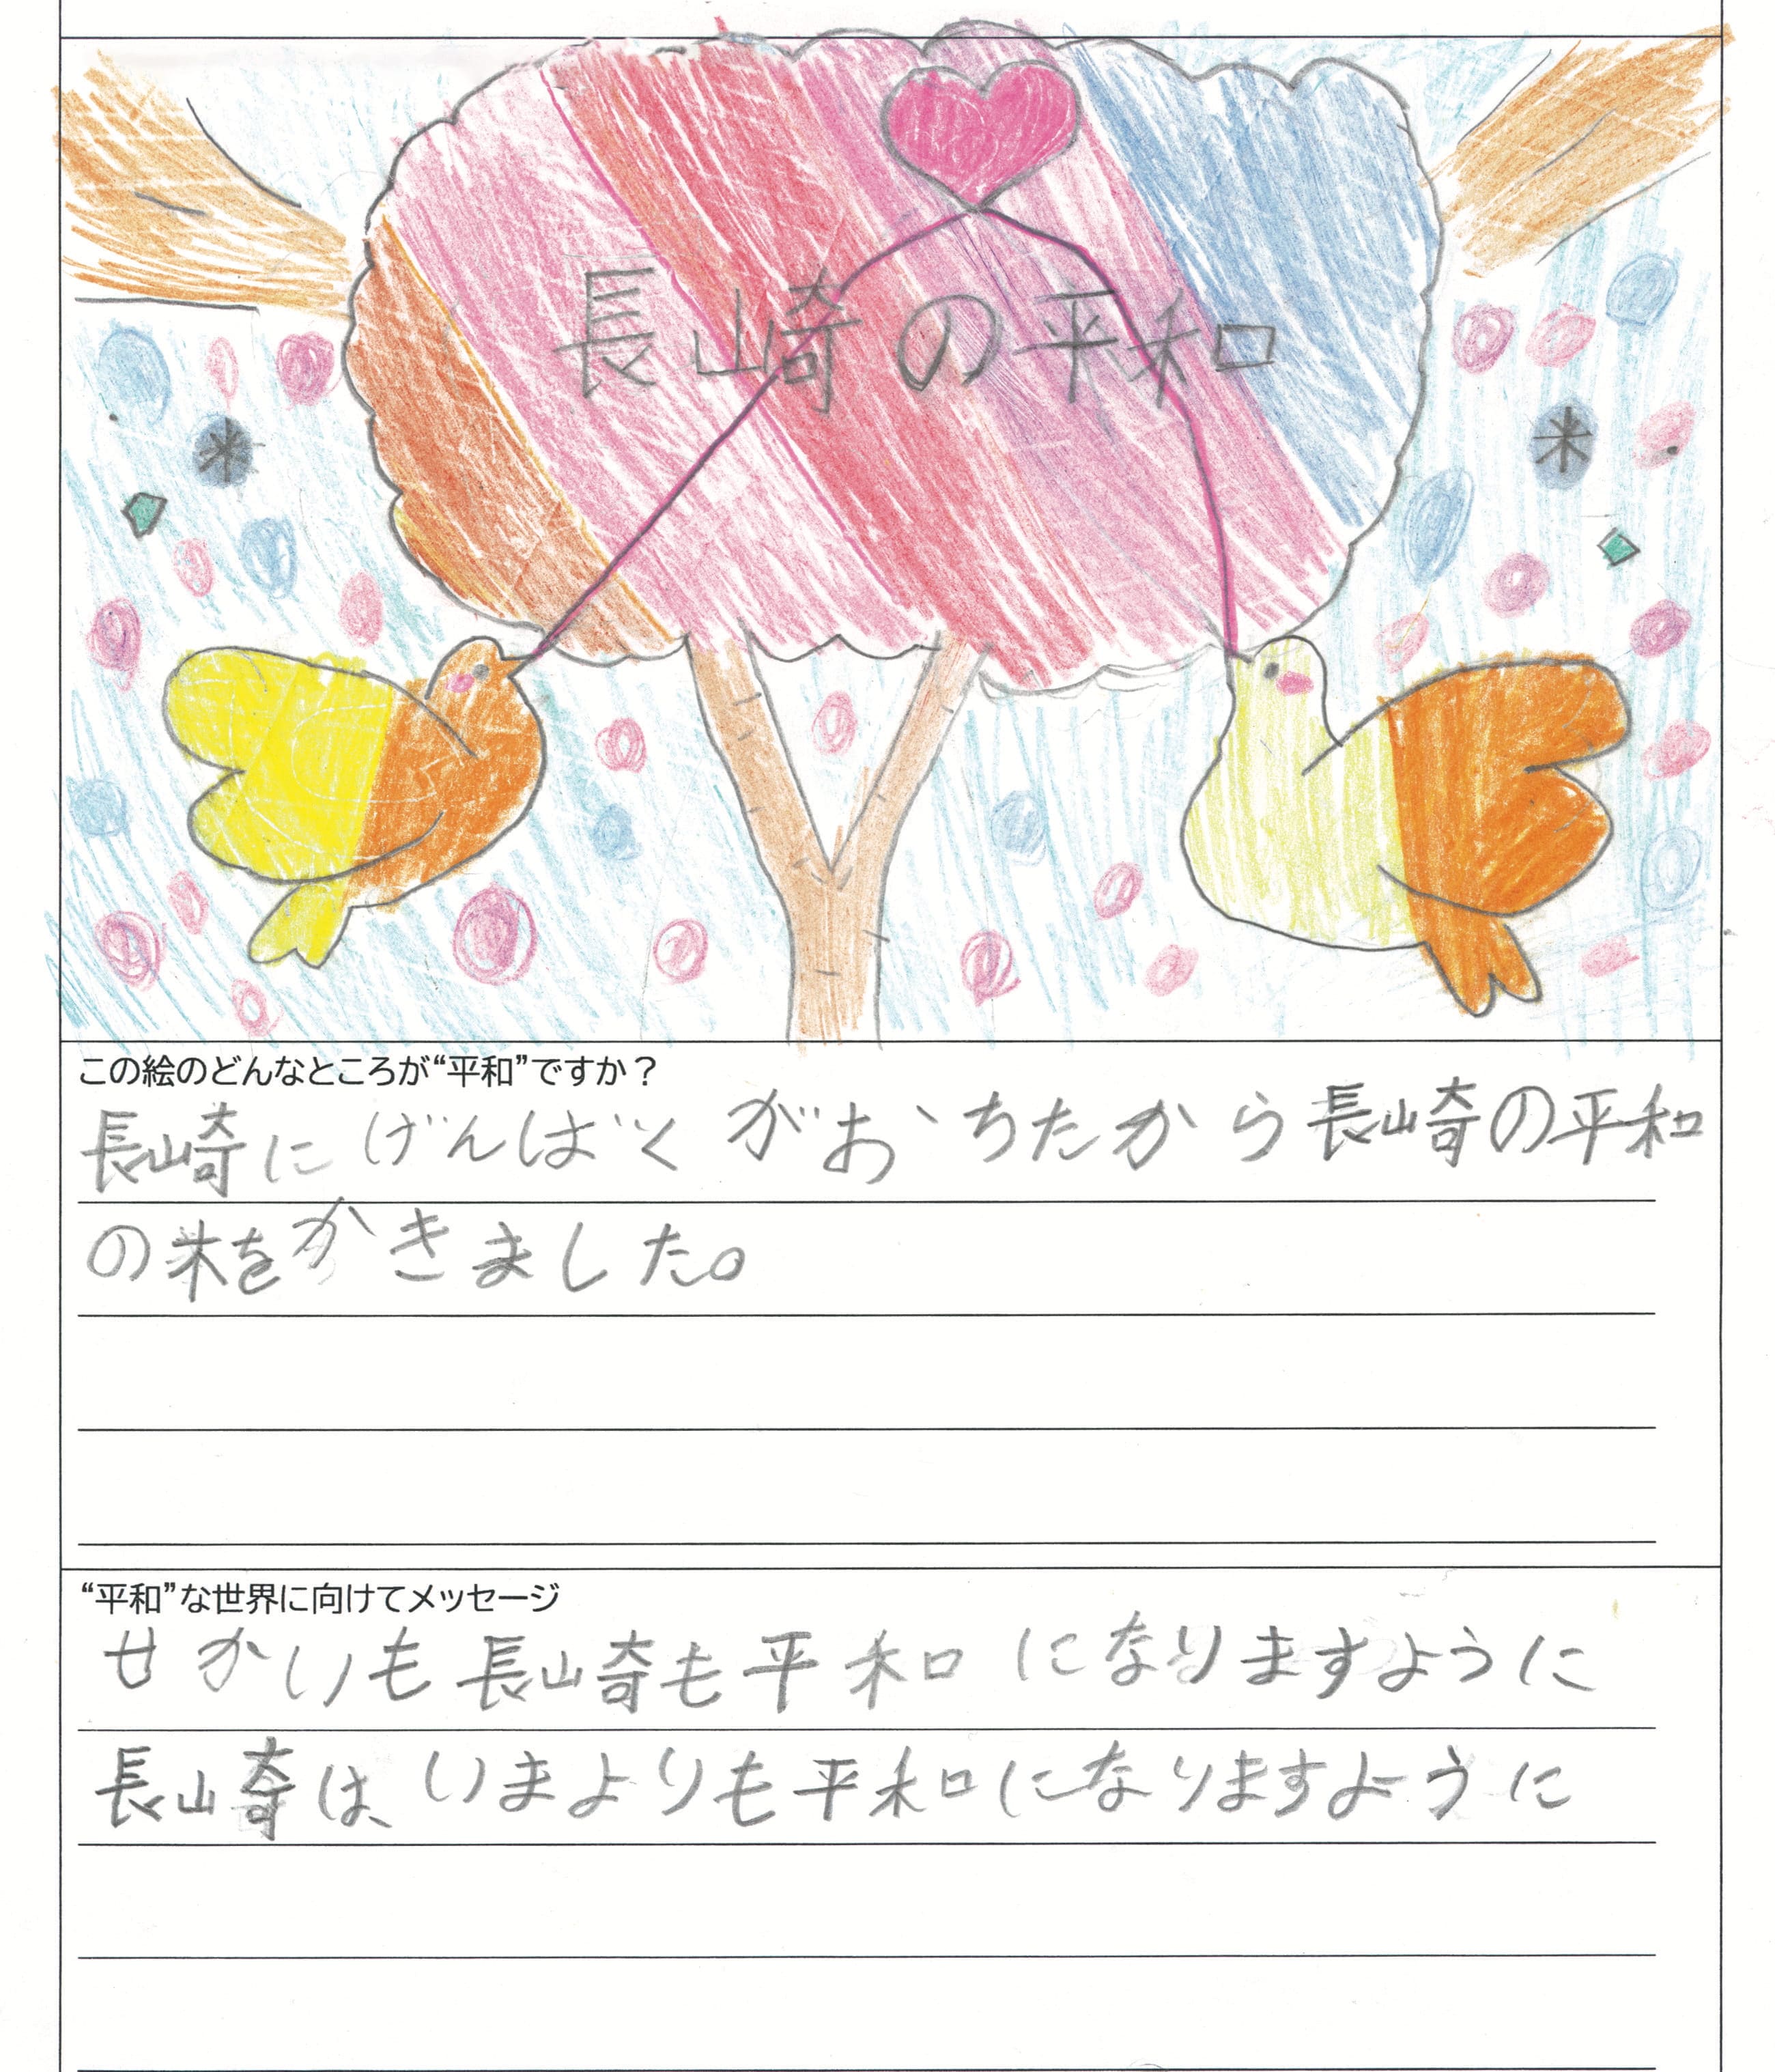 長崎の平和
この絵のどんなところが“平和”ですか？
長崎にげんばくがおちたから長崎の平和
の木をかきました。
“平和”な世界に向けてメッセージ
せかいも長崎も平和になりますように
長崎は、いまよりも平和になりますように